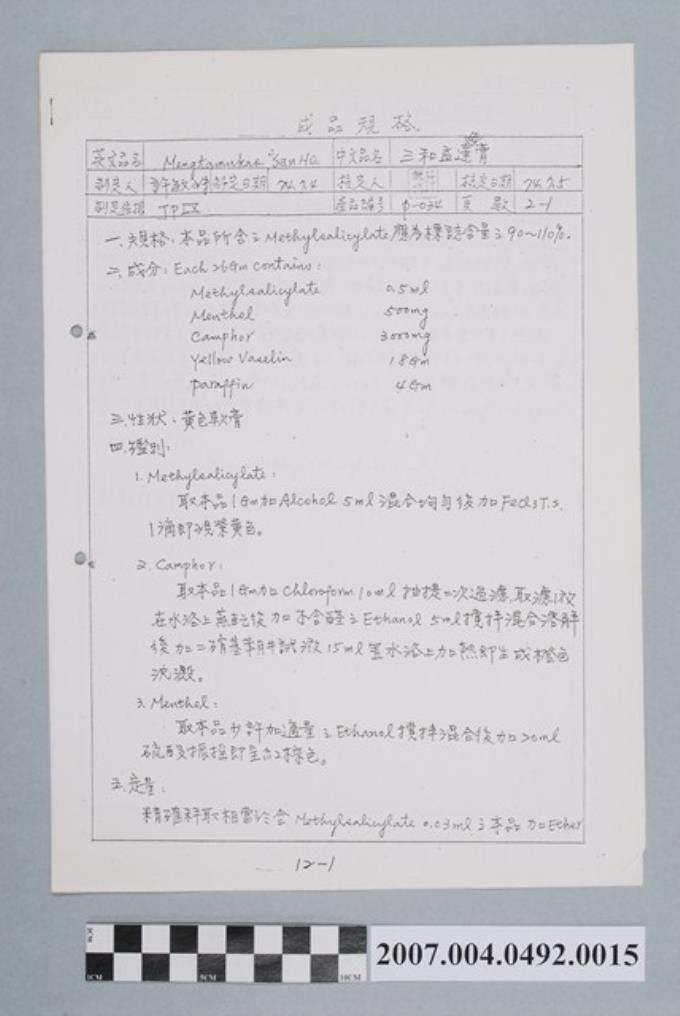 成品規格
英文品名 "San Ho" 中文品名 三和 膏
制定人 許敏 制定日期 74.7.4 核定人 核定日期 74.7.5
制定依據 JP 產品編號 p-034 頁數 2-1
一.規格:本品所含之Methylsalicylate應為標誌含量之90~110%.
二.成分:Each 26Gm contains:
Methylsalicylate 0.5ml
Menthol 500mg
Camphor 3000mg
Yellow Vaselin 18Gm
paraffin 4Gm
三.性狀:黃色軟膏
四.鑑別:
1. Methylsalicylate:
取本品1Gm加Alcohol 5ml混合均勻後加FeCl3 T.S.
1滴即現紫黃色。
2. Camphor:
取本品1Gm加Chloroform 10ml抽提二次過濾,取濾液
在水浴上蒸乾後加不含醛之Ethanol 5ml攪拌混合溶解
後加二硝基苯肼試液15ml置水浴上加熱即生成橙色
沈澱。
3. Menthol:
取本品少許加適量之Ethanol攪拌混合後加20ml
硫酸振搖即呈紅棕色。
五.定量:
精確秤取相當於含Methylsalicylate 0.03ml之本品加Ether
12-1
1CM 5CM 10CM
2007.004.0492.0015